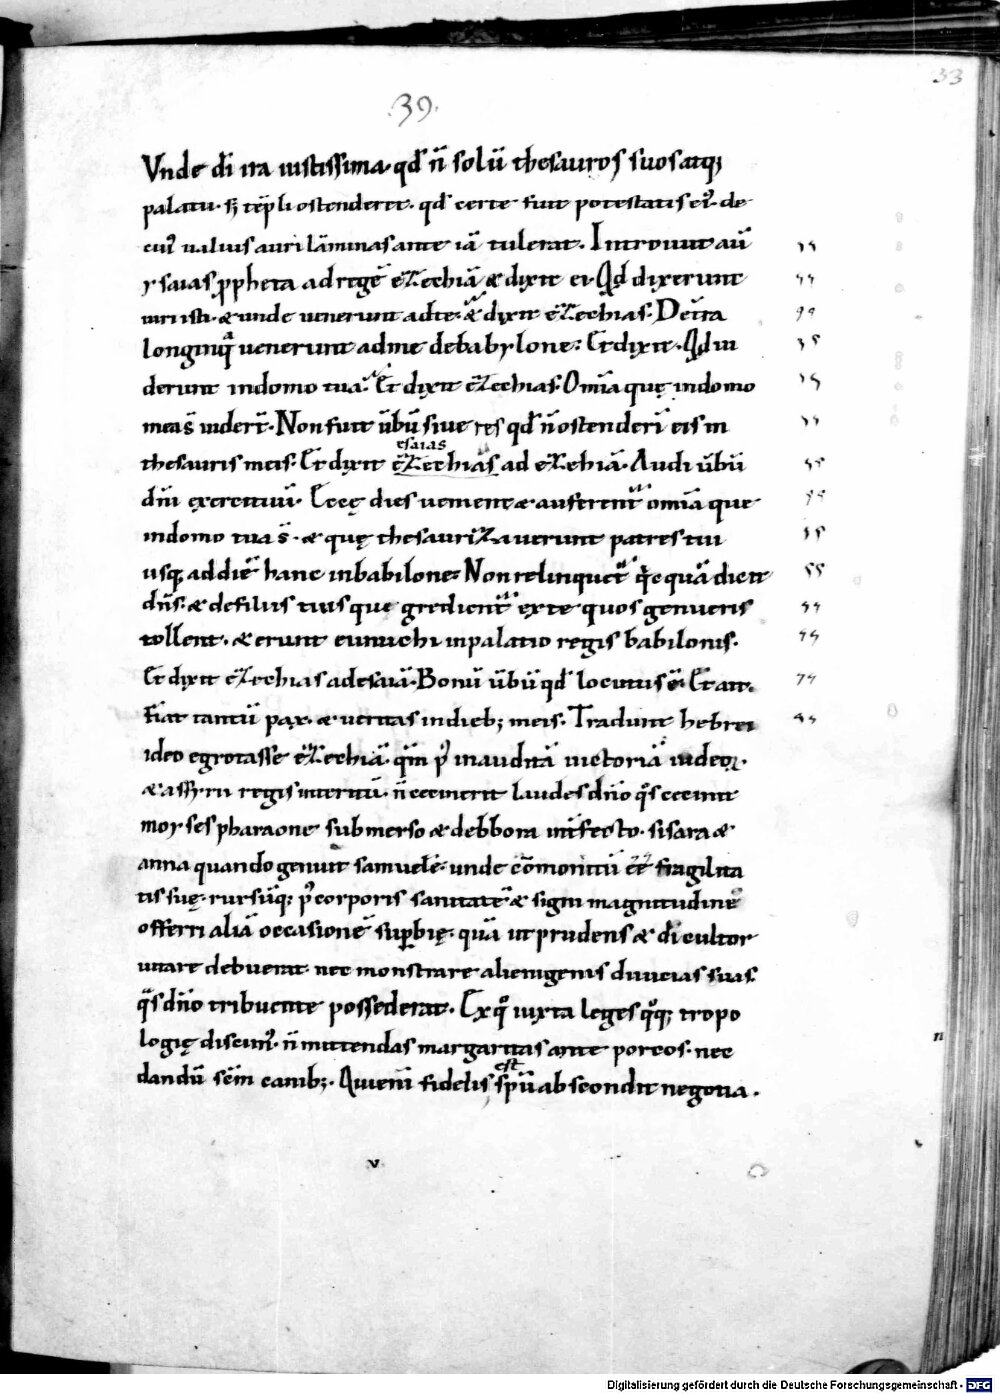 33
.39.
Vnde dī ira iustissima· qd̄ n̄ solū thesauros suos atq;
palatii· s; tēpli ostenderet· qd̄ certe fuit potestatis eiꝰ· de
cuiꝰ ualuis auri lāminas ante iā tulerat· Introiuit aū
ysaias ꝓpheta ad regē ezechiā & dixit ei· Qd dixerunt
uiri isti· & unde uenerunt ad te· & dixit ezechias· De t̄ra
longinqua uenerunt ad me de babylone· Et dixit· Qd ui
derunt in domo tua· Et dixit ezechias· Om̄ia quę in domo
mea s̄ uider̄t· Non fuit ūbū siue res qd̄ n̄ ostenderī eis in
esaias
thesauris meis· Et dixit ezechias ad ezehiā· Audi ūbū
dn̄i exercituū· Ecce dies uenient & auferent̄ om̄ia que
in domo tua s̄· & quę thesaurizauerunt patres tui
usq; ad diē hanc in babilonē· Non relinquet̄ qicquā dicit
dn̄s· & de filiis tuis qui egredient̄ ex te quos genueris
tollent· & erunt eunuchi in palatio regis babilonis·
Et dixit ezechias ad esaiā· Bonū ūbū qd̄ locutus ē· Et ait·
Fiat tantū pax· & ueritas in dieb; meis· Tradunt hebrei
ideo egrotasse ezechiā· qm̄ pꝰ inauditā uictoriā iudeoꝝ·
& assyrii regis interitū· n̄ cecinerit laudes dn̄o qᵃs cecinit
moyses pharaone submerso & debbora int̄fecto· sisara &
anna quando genuit samuelē· unde cōmonitū ēē fragilita
tis suę· rursūq; pꝰ corporis sanitatē & signi magnitudinē
offerri aliā occasionē suꝑbię· quā ut prudens & dī cultor
uitare debuerat· nec monstrare alienigenis diuicias suas·
qᵃs dn̄o tribuente possederat· Ex qᵒ iuxta leges qᵒq; tropo
logię discimꝰ· n̄ mittendas margaritas ante porcos· nec
est
dandū sc̄m canib;· Qui enī fidelis spū abscondit negotia·
v